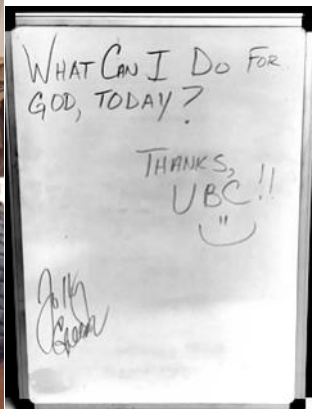 WHAT CAN I DO FOR
GOD, TODAY?
THANKS,
UBC!!
Jolly
Green